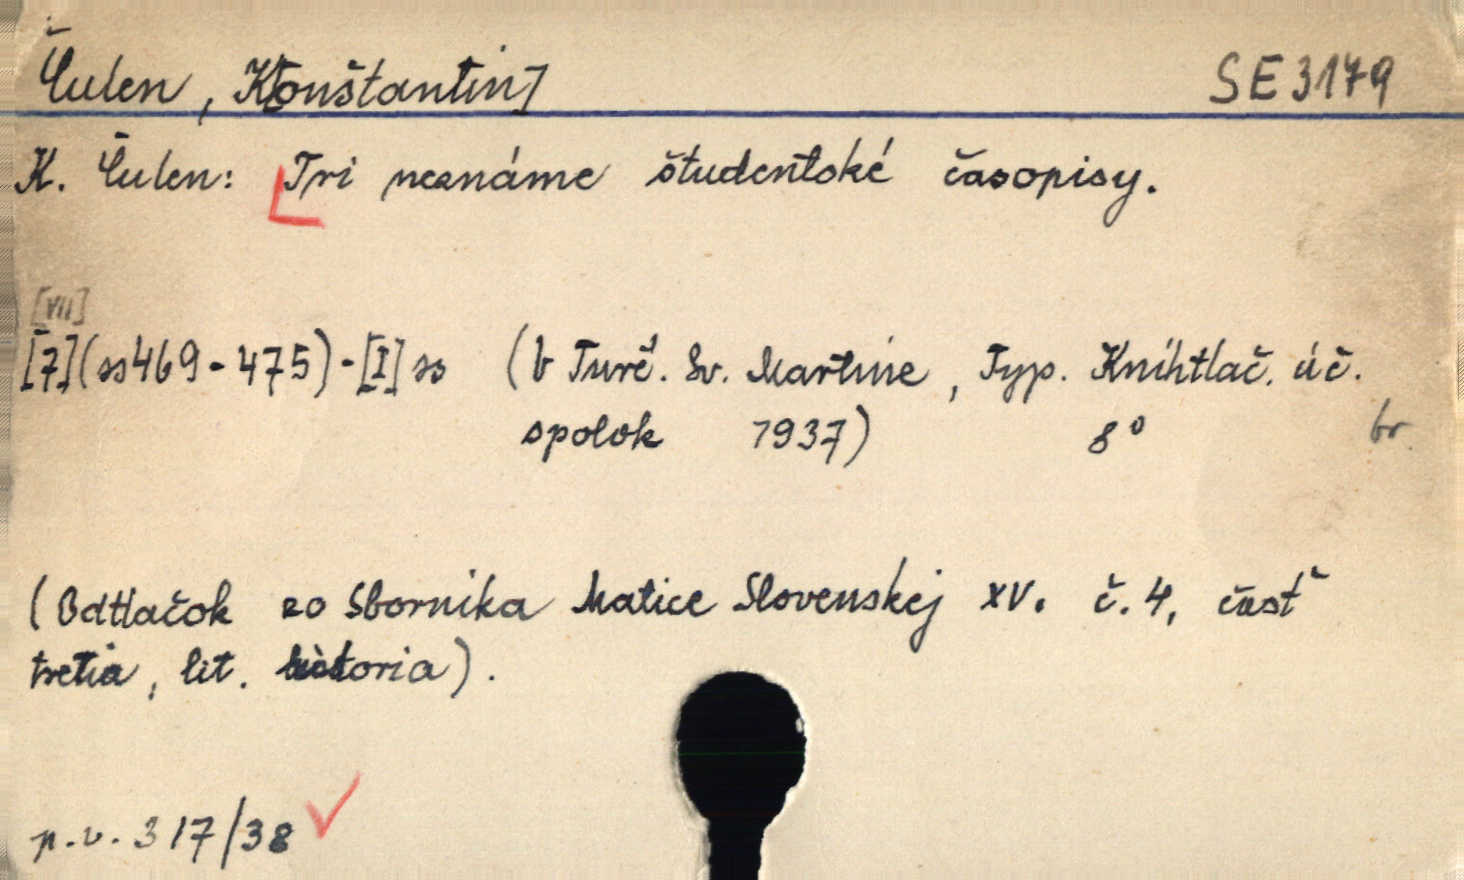 Čulen, K[onštantin]
SE 3179
K. Čulen: Tri neznáme študentské časopisy.
[VII]
[7](ss469-475)-[I] ss (V Turč. Sv. Martine, Typ. Kníhtlač. úč.
spolok 1937) 8° br.
(Odtlačok zo Sborníka Matice Slovenskej XV. č. 4, časť
tretia, lit. historia).
p.v. 317/38